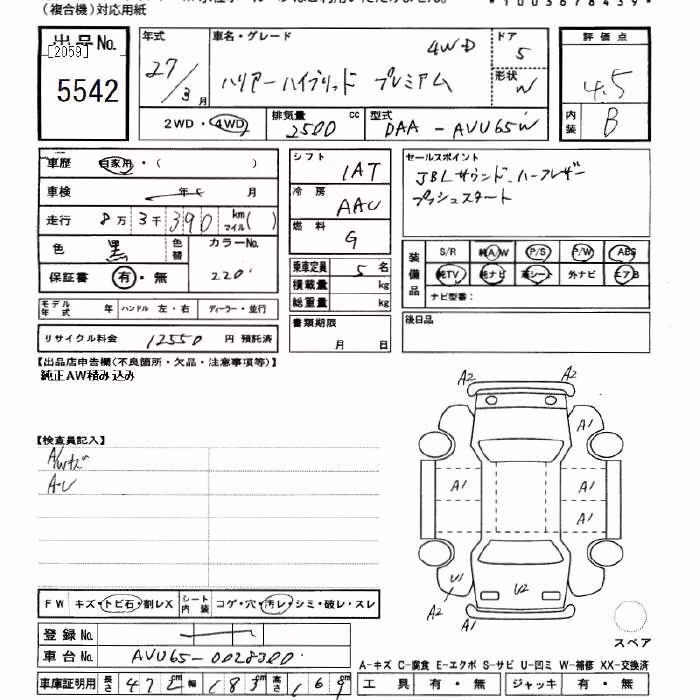 (複合機)対応用紙
*1003678439*
出品No.
[2059]
5542
年式
27/3月
車名・グレード
4WD
ハリアーハイブリッド プレミアム
ドア
5
形状
W
評価点
4.5
内装
B
2WD・4WD
排気量
2500 cc
型式
DAA-AVU65W
車歴 自家用・( )
車検 年 月
走行 8万3千390 kmマイル( )
色 黒 色替 カラーNo.
220
保証書 有・無
モデル年式 年 ハンドル 左・右 ディーラー・並行
リサイクル料金 12550円 預託済
シフト
1AT
冷房
AAC
燃料
G
乗車定員 5名
積載量 kg
総重量 kg
書類期限
月 日
セールスポイント
JBLサウンド、ハーフレザー
プッシュスタート
装備品
S/R 純A/W P/S P/W ABS
純TV 純ナビ 革シート 外ナビ エアB
ナビ型番:
後日品
【出品店申告欄(不良箇所・欠品・注意事項等)】
純正AW積み込み
【検査員記入】
A/Wキズ
A・U
A2 A2
A1
A1 A1
A1
U1 U2
A2 A1
A2
スペア
FW キズ・トビ石・割レX シート内装 コゲ・穴・汚レ・シミ・破レ・スレ
登録No.
車台No. AVU65-0028300
A-キズ C-腐食 E-エクボ S-サビ U-凹ミ W-補修 XX-交換済
車庫証明用 長さ 472cm 幅 183cm 高さ 169
工具 有・無 ジャッキ 有・無